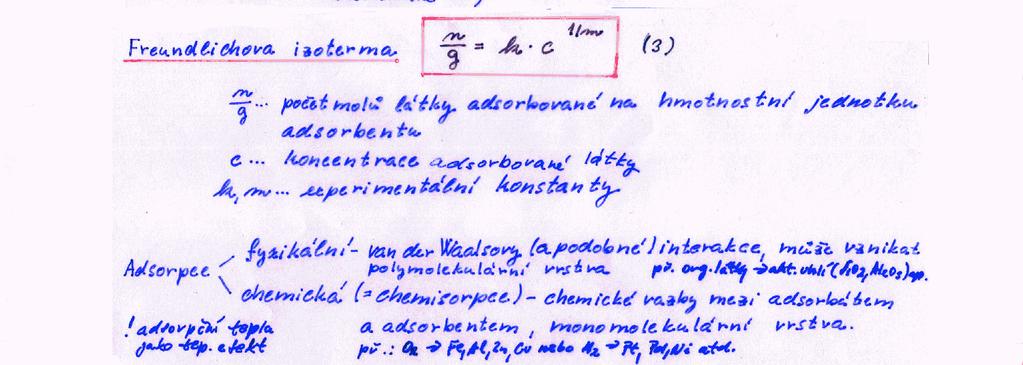 Freundlichova izoterma n/g = k · c^1/m (3)
n/g ... počet molů látky adsorbované na hmotnostní jednotku
adsorbentu
c ... koncentrace adsorbované látky
k, m ... experimentální konstanty
Adsorpce
fyzikální - van der Waalsovy (a podobné) interakce, může vznikat
polymolekulární vrstva př. org. látky → akt. uhlí (SiO2, Al2O3) ap.
chemická (= chemisorpce) - chemické vazby mezi adsorbátem
a adsorbentem, monomolekulární vrstva.
! adsorpční tepla
jako tep. efekt
př.: O2 → Fe, Al, Zn, Cu nebo H2 → Pt, Pd, Ni atd.